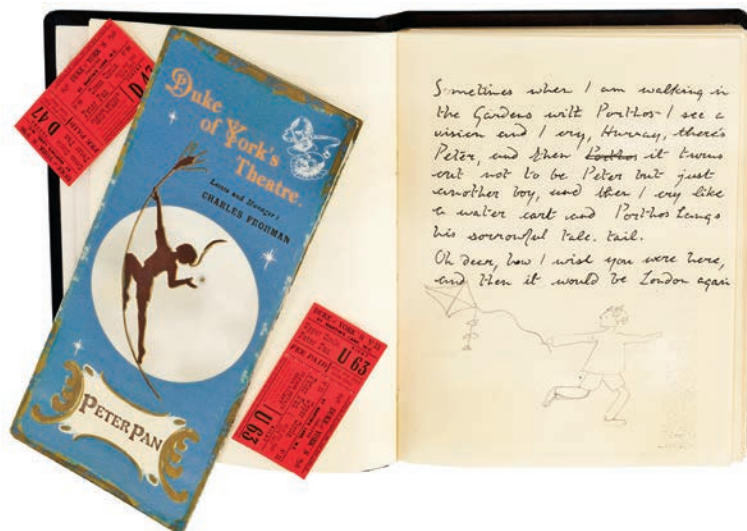 DUKE OF YORK'S
D 47
FEE PAID
D 47
Duke
of York's
Theatre.
Lessee and Manager:
CHARLES FROHMAN
PETER PAN
DUKE OF YORK'S
Peter Pan
FEE PAID
U 63
U 63
Sometimes when I am walking in
the Gardens with Porthos I see a
vision and I cry, Hurray, there's
Peter, and then Porthos it turns
out not to be Peter but just
another boy, and then I cry like
a water cart and Porthos hangs
his sorrowful tale. tail.
Oh dear, how I wish you were here,
and then it would be London again